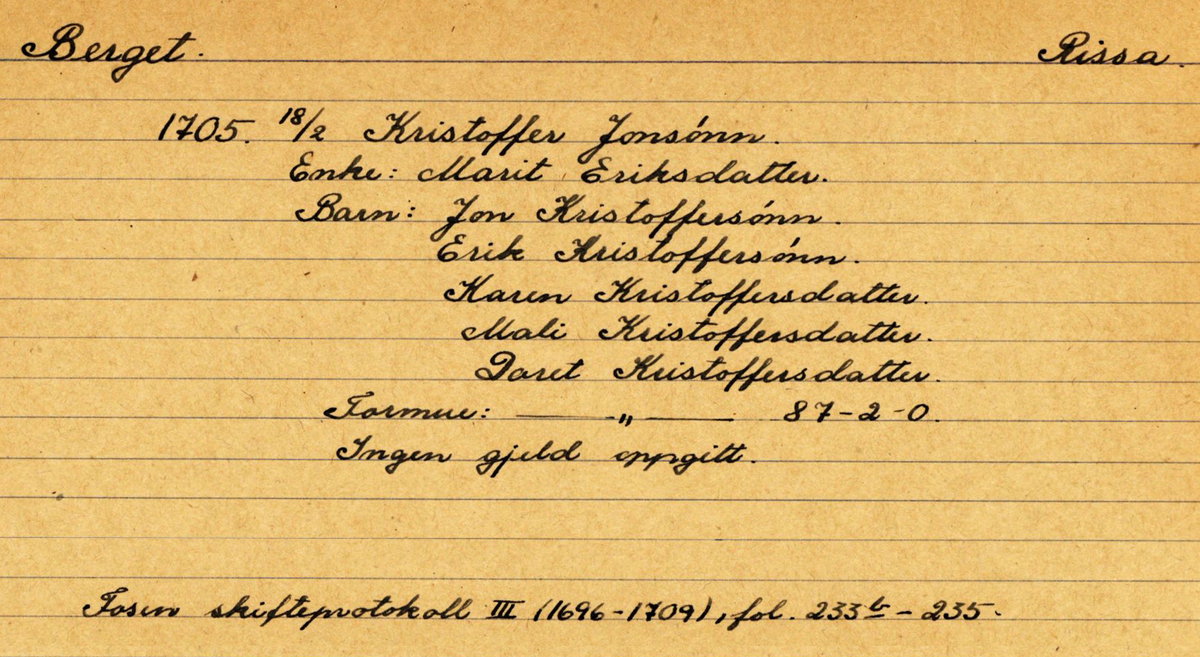 Berget. Rissa.
1705. 18/2 Kristoffer Jonsónn.
Enke: Marit Eriksdatter.
Barn: Jon Kristoffersónn.
Erik Kristoffersónn.
Karen Kristoffersdatter.
Mali Kristoffersdatter.
Doret Kristoffersdatter.
Formue: —„— 87-2-0.
Ingen gjeld oppgitt.
Fosen skifteprotokoll III (1696-1709), fol. 233b - 235.